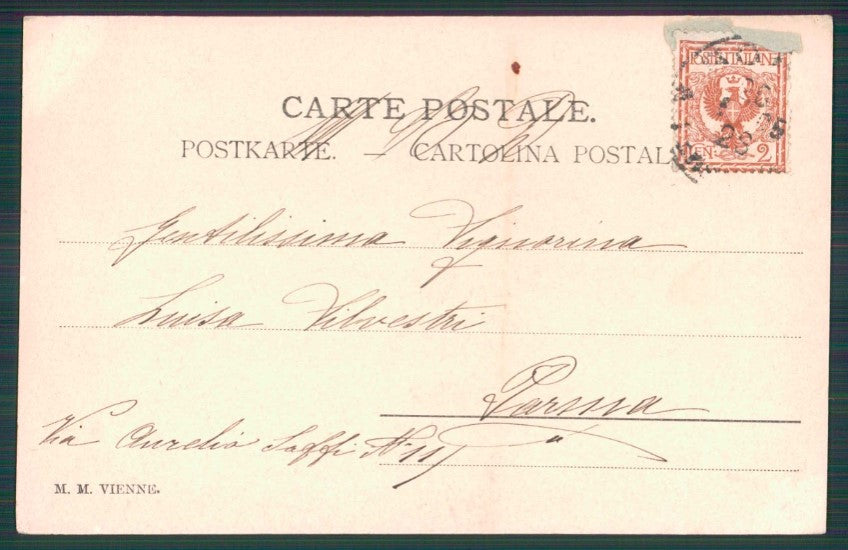 POSTE ITALIANE
CEN 2
CARTE POSTALE.
POSTKARTE. — CARTOLINA POSTALE
Gentilissima Signorina
Luisa Silvestri
Parma
Via Aurelio Saffi N 11
M. M. VIENNE.